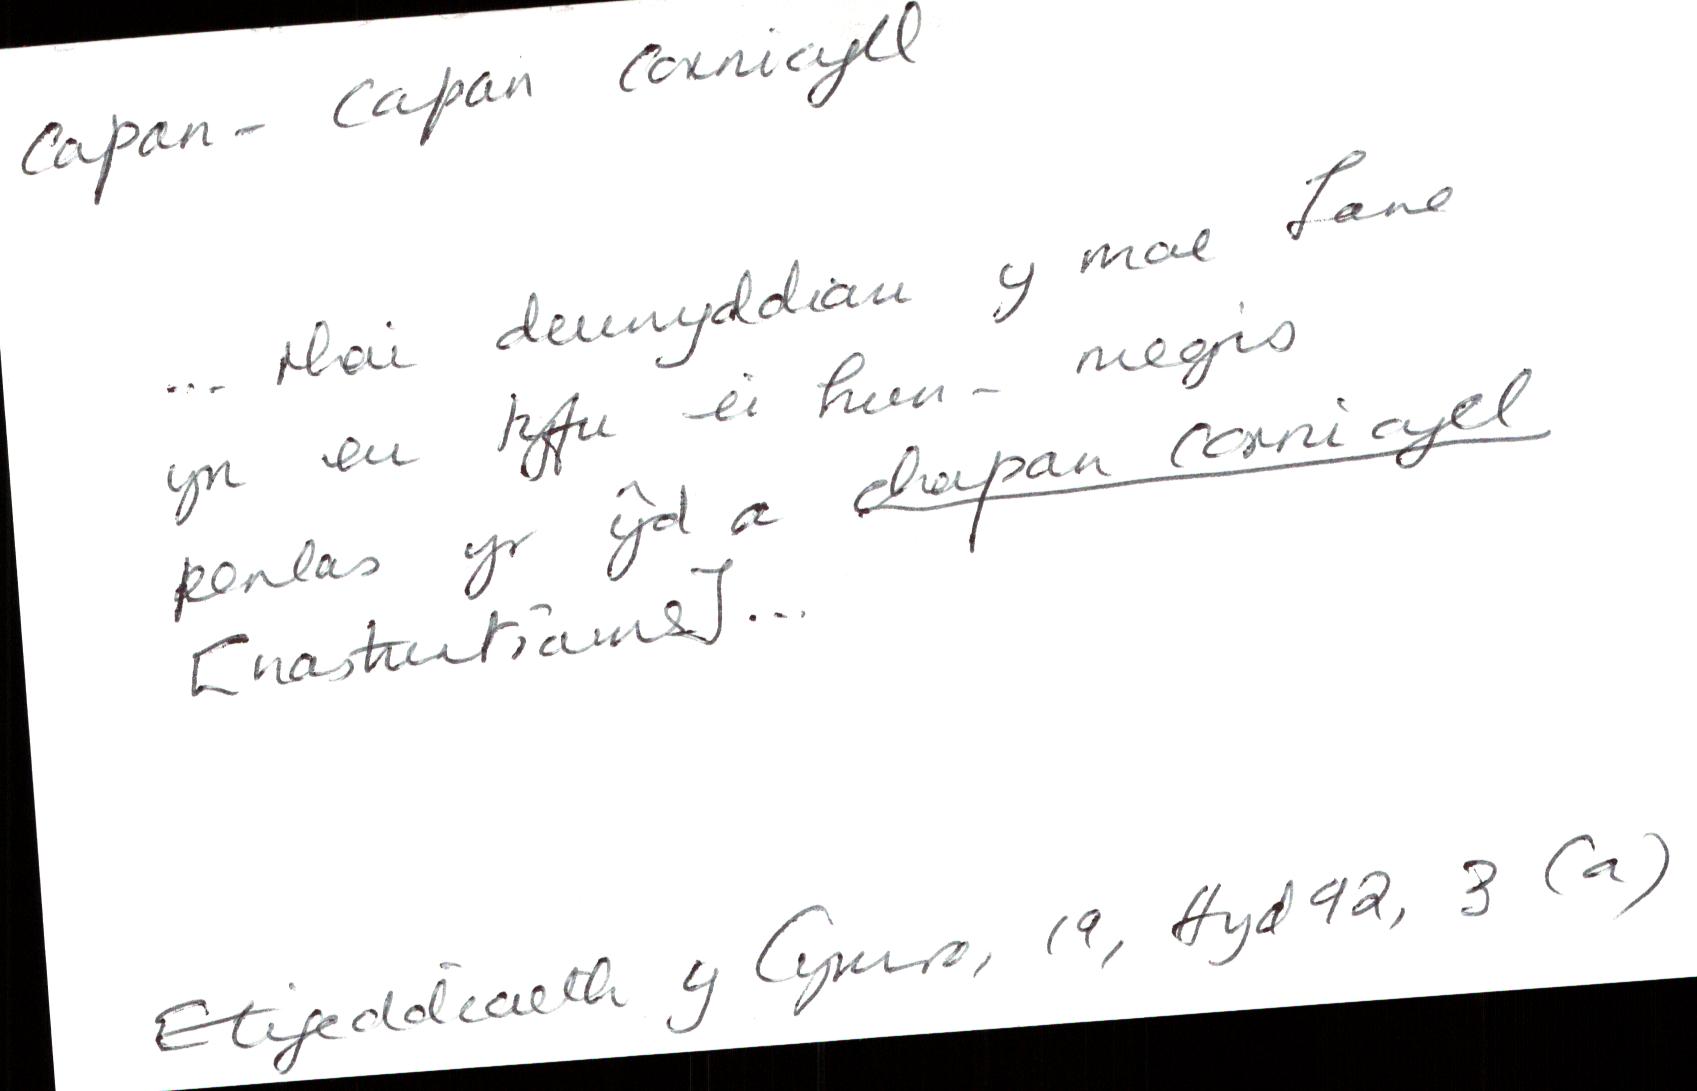 Capan - Capan cornicyll
... rhai deunyddiau y mae Jane
yn eu tyfu ei hun - megis
penlas yr ŷd a chapan cornicyll
[nasturtiums] ...
Etifeddiaeth y Cymro, 19, Hyd 92, 3 (a)